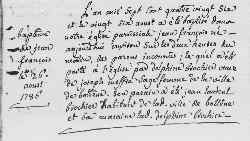 L'an mil sept cent quatre vingt six
et le vingt six aout a été baptisé dans
notre église paroissiale jean françois né
aujourd'hui environ sur les deux heures du
matin, des parens inconnus, lequel a été
porté à l'église par delphine brochier
de joseph sage femme de la ville
de bollene. Son parrain a été jean
brochier habitant de lad. ville de bollene
et sa marraine lad. delphine brochier
baptême
de jean
françois
le 26e
aout
1786